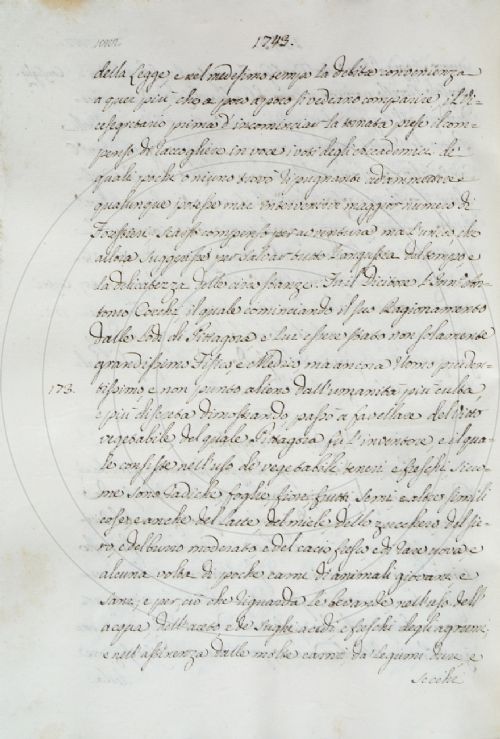 1743.
della Legge, e nel medesimo tempo la debita convenienza
a quei più, che a poco a poco si vedeano comparire, il Vi-
cesegretario prima d'incominciar la tornata prese il com-
penso di raccogliere in voce i voti degli Accademici de
quali pochi o niuno trovò ripugnante ad ammettere
qualunque potesse mai intervenirvi maggior numero di
Forestieri, scarso compenso per avventura ma l'unico che
allora suggerisse per salvar tutto l'angustia del tempo, e
la delicatezza delle circostanze. Fu il Dicitore l'
tonio Cocchi, il quale cominciando il suo Ragionamento
dalle Lodi di Pittagora e Lui essere stato non solamente
grandissimo Fisico e Medico ma ancora Uomo pruden-
173. tissimo e non punto alieno dall'umanità più culta,
e più discreta dimostrando passò a favellare del Vitto
vegetabile del quale Pittagora fu l'inventore e il qua-
le consiste nell'uso de vegetabili teneri e freschi sicco-
me sono radiche foglie fiori frutti semi e altre simili
cose e anche del latte del miele dello zucchero del sie-
ro, e del burro moderato e del cacio fresco e di rare uova e
alcuna volta di poche carni di animali giovani e
sani, e per ciò che riguarda le bevande nell'uso dell'
acqua, dell'aceto e de' sughi acidi e freschi degli agrumi;
e nell'astinenza dalle molte carni da legumi duri e
secchi